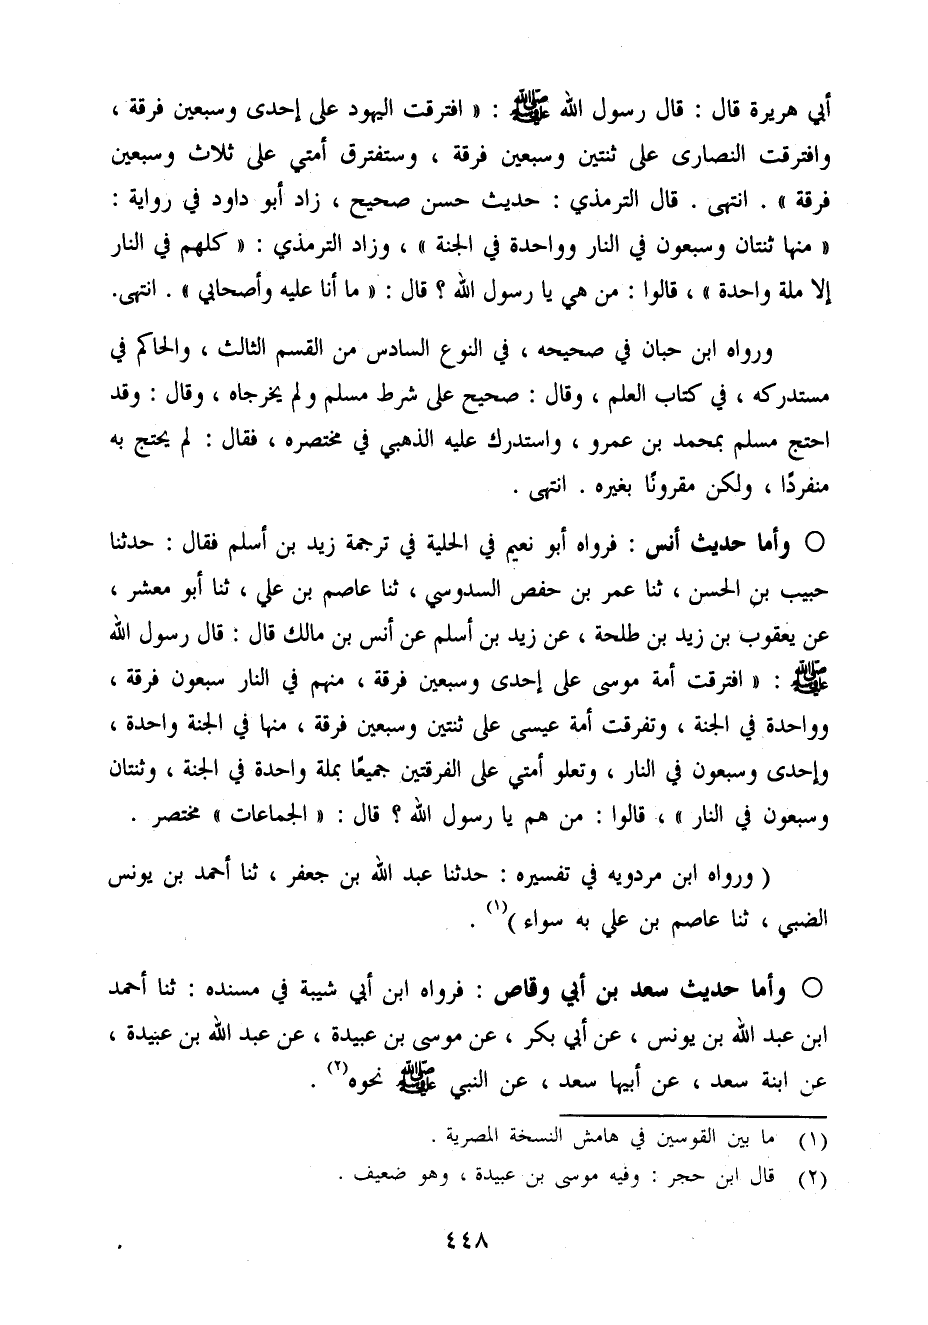 أبي هريرة قال : قال رسول الله ﷺ : « افترقت اليهود على إحدى وسبعين فرقة ،
وافترقت النصارى على ثنتين وسبعين فرقة ، وستفترق أمتي على ثلاث وسبعين
فرقة » . انتهى . قال الترمذي : حديث حسن صحيح ، زاد أبو داود في رواية :
« منها ثنتان وسبعون في النار وواحدة في الجنة » ، وزاد الترمذي : « كلهم في النار
إلا ملة واحدة » ، قالوا : من هي يا رسول الله ؟ قال : « ما أنا عليه وأصحابي » . انتهى.
ورواه ابن حبان في صحيحه ، في النوع السادس من القسم الثالث ، والحاكم في
مستدركه ، في كتاب العلم ، وقال : صحيح على شرط مسلم ولم يخرجاه ، وقال : وقد
احتج مسلم بمحمد بن عمرو ، واستدرك عليه الذهبي في مختصره ، فقال : لم يحتج به
منفردًا ، ولكن مقرونًا بغيره . انتهى .
○ وأما حديث أنس : فرواه أبو نعيم في الحلية في ترجمة زيد بن أسلم فقال : حدثنا
حبيب بن الحسن ، ثنا عمر بن حفص السدوسي ، ثنا عاصم بن علي ، ثنا أبو معشر ،
عن يعقوب بن زيد بن طلحة ، عن زيد بن أسلم عن أنس بن مالك قال : قال رسول الله
ﷺ : « افترقت أمة موسى على إحدى وسبعين فرقة ، منهم في النار سبعون فرقة ،
وواحدة في الجنة ، وتفرقت أمة عيسى على ثنتين وسبعين فرقة ، منها في الجنة واحدة ،
وإحدى وسبعون في النار ، وتعلو أمتي على الفرقتين جميعًا بملة واحدة في الجنة ، وثنتان
وسبعون في النار » ، قالوا : من هم يا رسول الله ؟ قال : « الجماعات » مختصر .
( ورواه ابن مردويه في تفسيره : حدثنا عبد الله بن جعفر ، ثنا أحمد بن يونس
الضبي ، ثنا عاصم بن علي به سواء )(١) .
○ وأما حديث سعد بن أبي وقاص : فرواه ابن أبي شيبة في مسنده : ثنا أحمد
ابن عبد الله بن يونس ، عن أبي بكر ، عن موسى بن عبيدة ، عن عبد الله بن عبيدة ،
عن ابنة سعد ، عن أبيها سعد ، عن النبي ﷺ نحوه(٢) .
(١) ما بين القوسين في هامش النسخة المصرية .
(٢) قال ابن حجر : وفيه موسى بن عبيدة ، وهو ضعيف .
٤٤٨